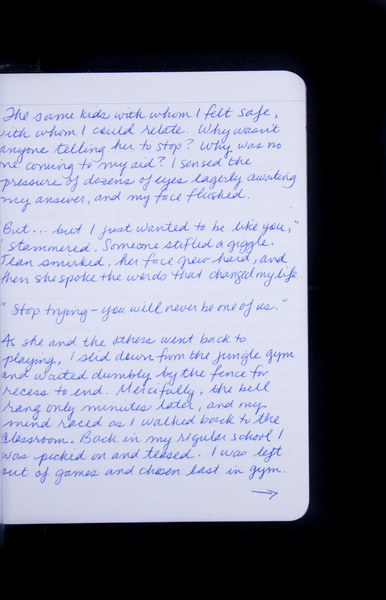 The same kids with whom I felt safe,
with whom I could relate. Why wasn't
anyone telling her to stop? Why was no
one coming to my aid? I sensed the
pressure of dozens of eyes eagerly awaiting
my answer, and my face flushed.
But... but I just wanted to be like you,"
I stammered. Someone stifled a giggle.
Jean smirked, her face grew hard, and
then she spoke the words that changed my life.
"Stop trying - you will never be one of us."
As she and the others went back to
playing, I slid down from the jungle gym
and waited dumbly by the fence for
recess to end. Mercifully, the bell
rang only minutes later, and my
mind raced as I walked back to the
classroom. Back in my regular school I
was picked on and teased. I was left
out of games and chosen last in gym.
→